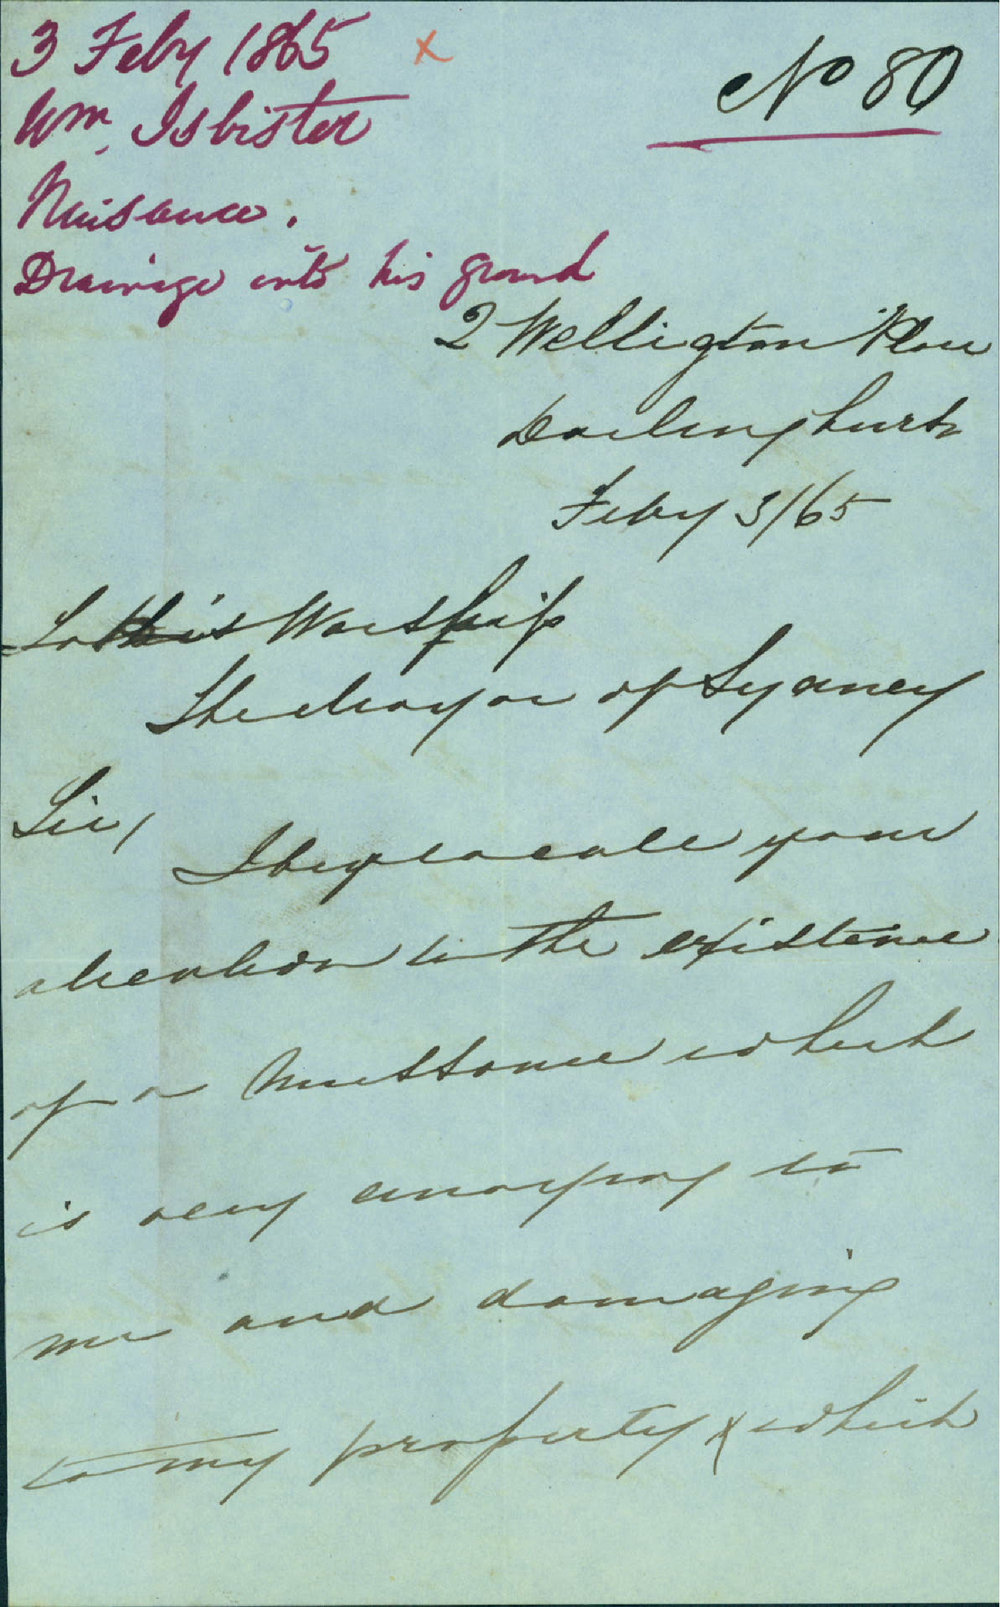 3 Feby 1865 x
No 80
Wm. Isbister
Nuisance.
Drainage into his ground
2 Wellington Place
Darlinghurst
Feby 3/65
To His Worship
The Mayor of Sydney
Sir,
I beg to call your
attention to the existence
of a nuissance which
is very annoying to
me and damaging
to my property & which